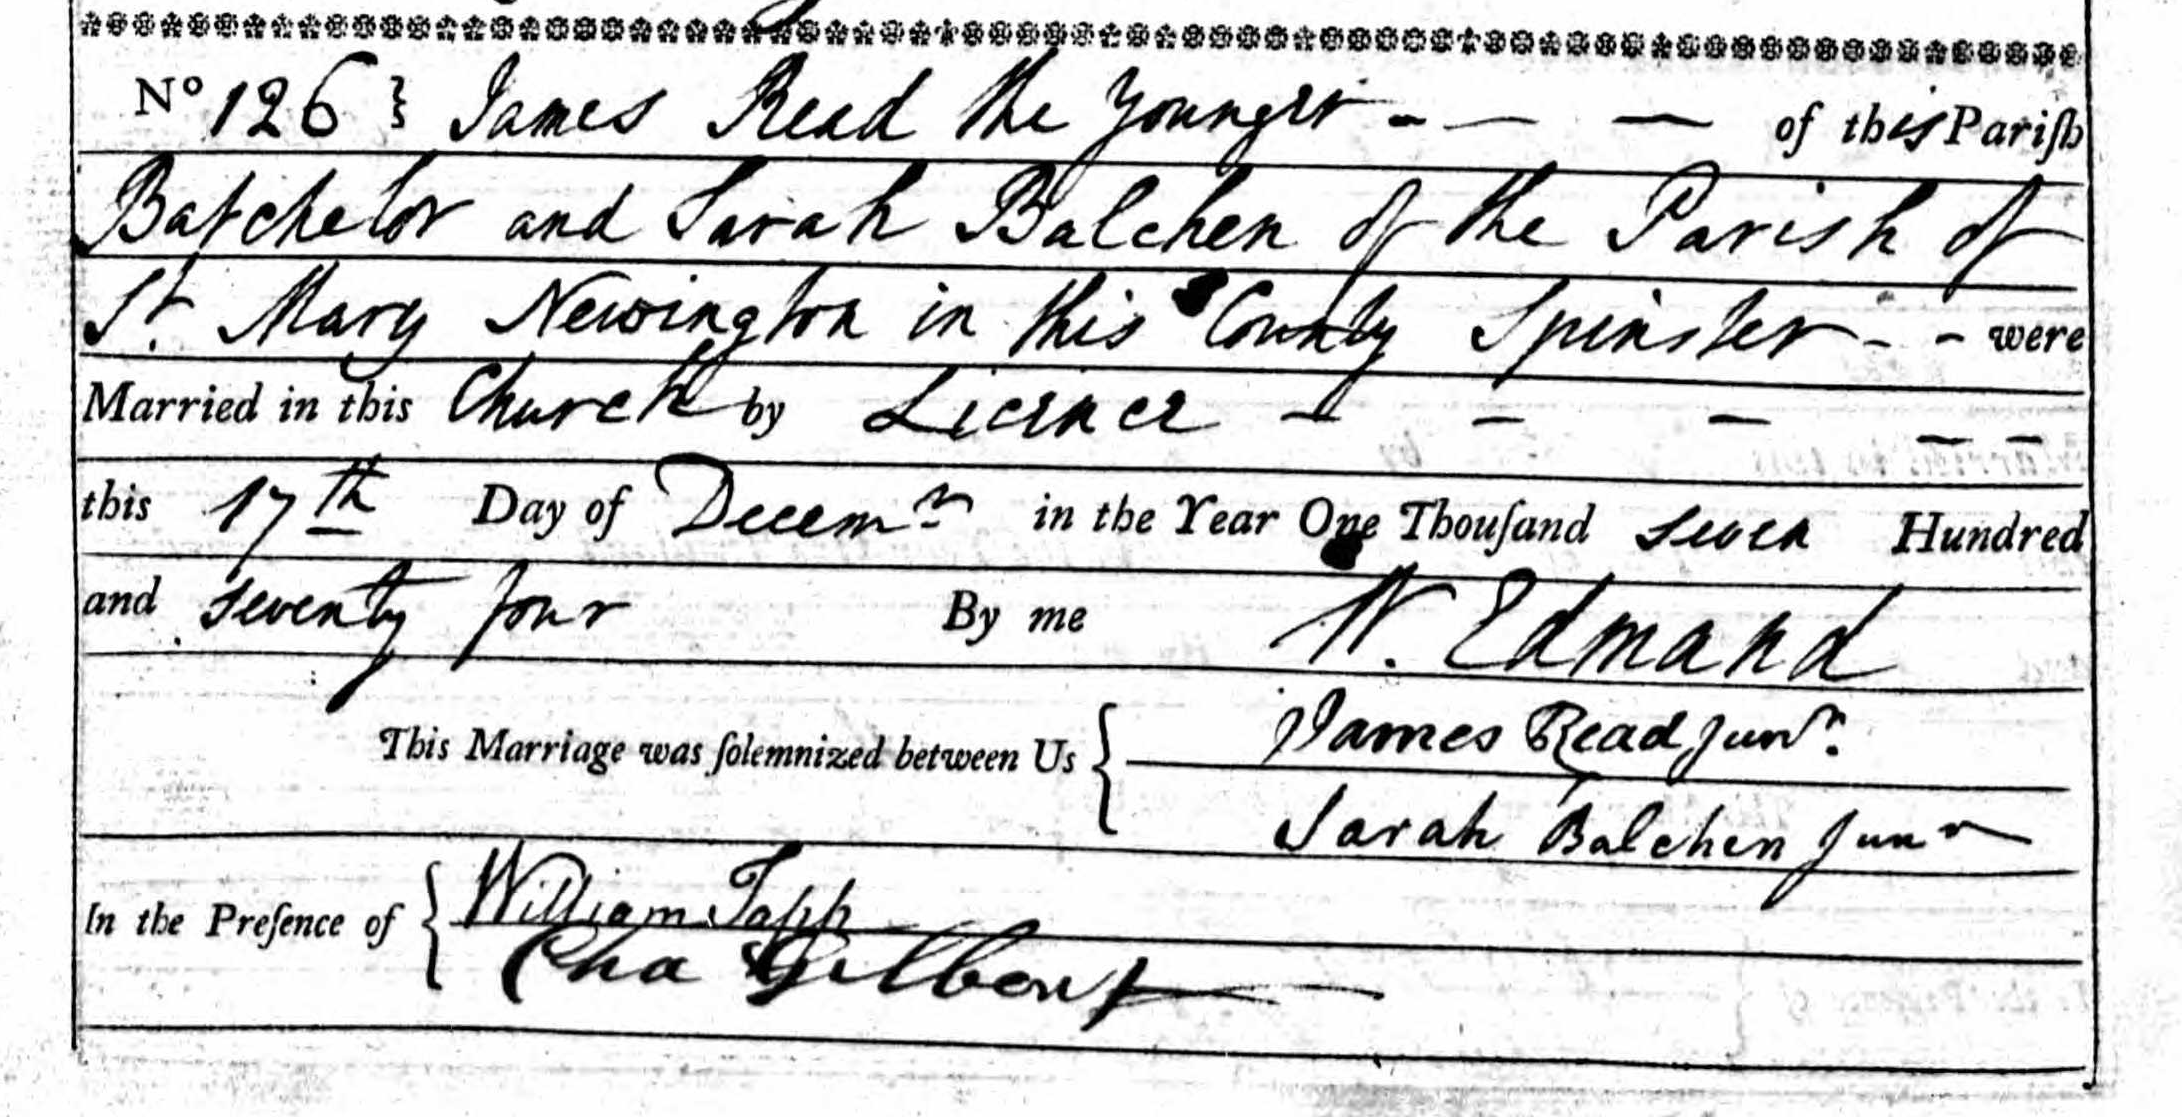 No 126 } James Read the Younger - — — of this Pariſh
Batchelor and Sarah Balchen of the Parish of
St. Mary Newington in this County Spinster - - were
Married in this Church by Licence — — — — —
this 17th Day of Decemr in the Year One Thouſand seven Hundred
and seventy four By me W. Edmand
This Marriage was ſolemnized between Us { James Read Junr.
Sarah Balchen Junr
In the Preſence of { William Tapp
Cha Gilbert